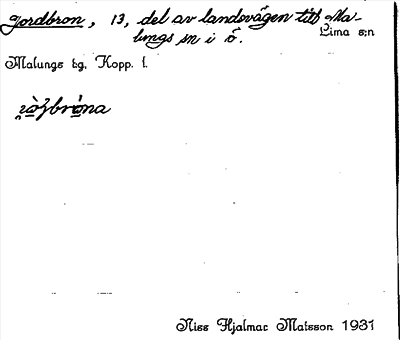 Jordbron, 13, del av landsvägen till Ma-
lungs sn i ö.
Lima s:n
Malungs tg, Kopp. l.
Niss Hjalmar Matsson 1931